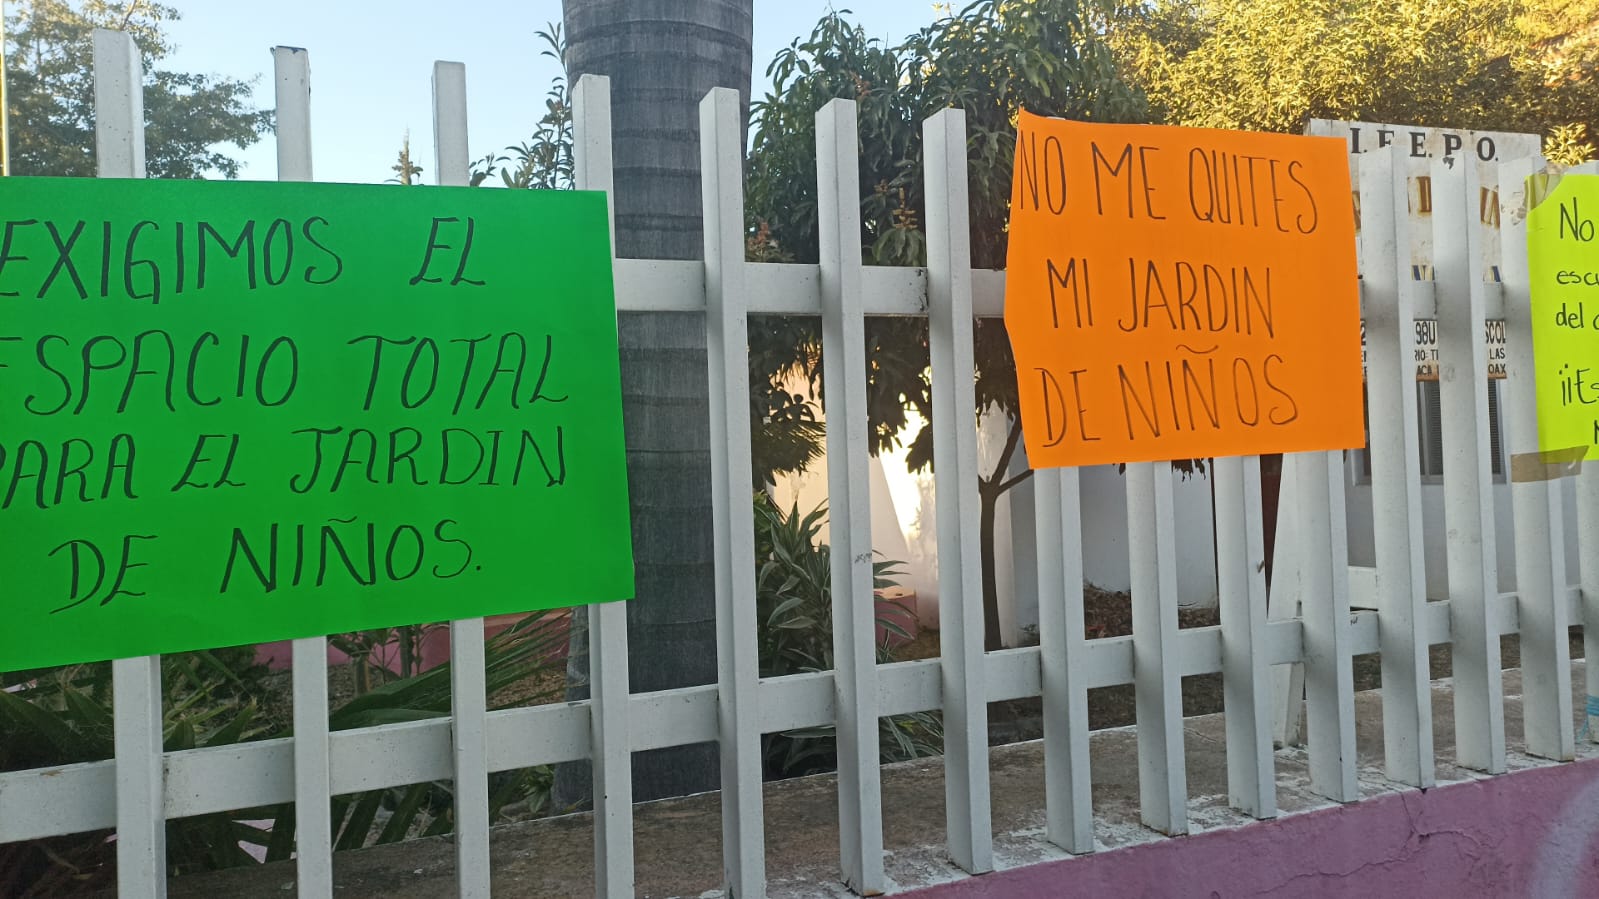 EXIGIMOS EL
ESPACIO TOTAL
PARA EL JARDIN
DE NIÑOS.
NO ME QUITES
MI JARDIN
DE NIÑOS
I.E.E.P.O.
98U
LAS
OAX
No
del
¡¡Es